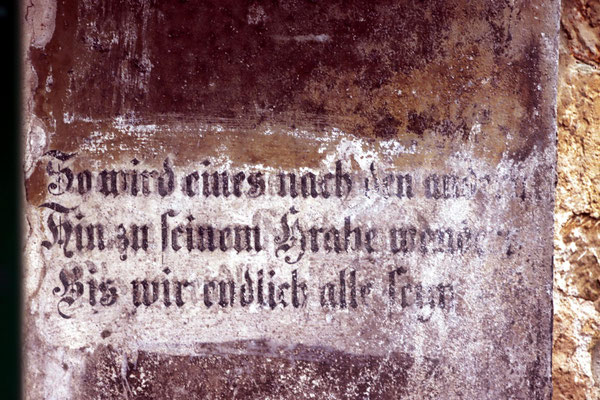 So wird eines nach den andern
Hin zu seinem Grabe
Bis wir endlich alle seyn